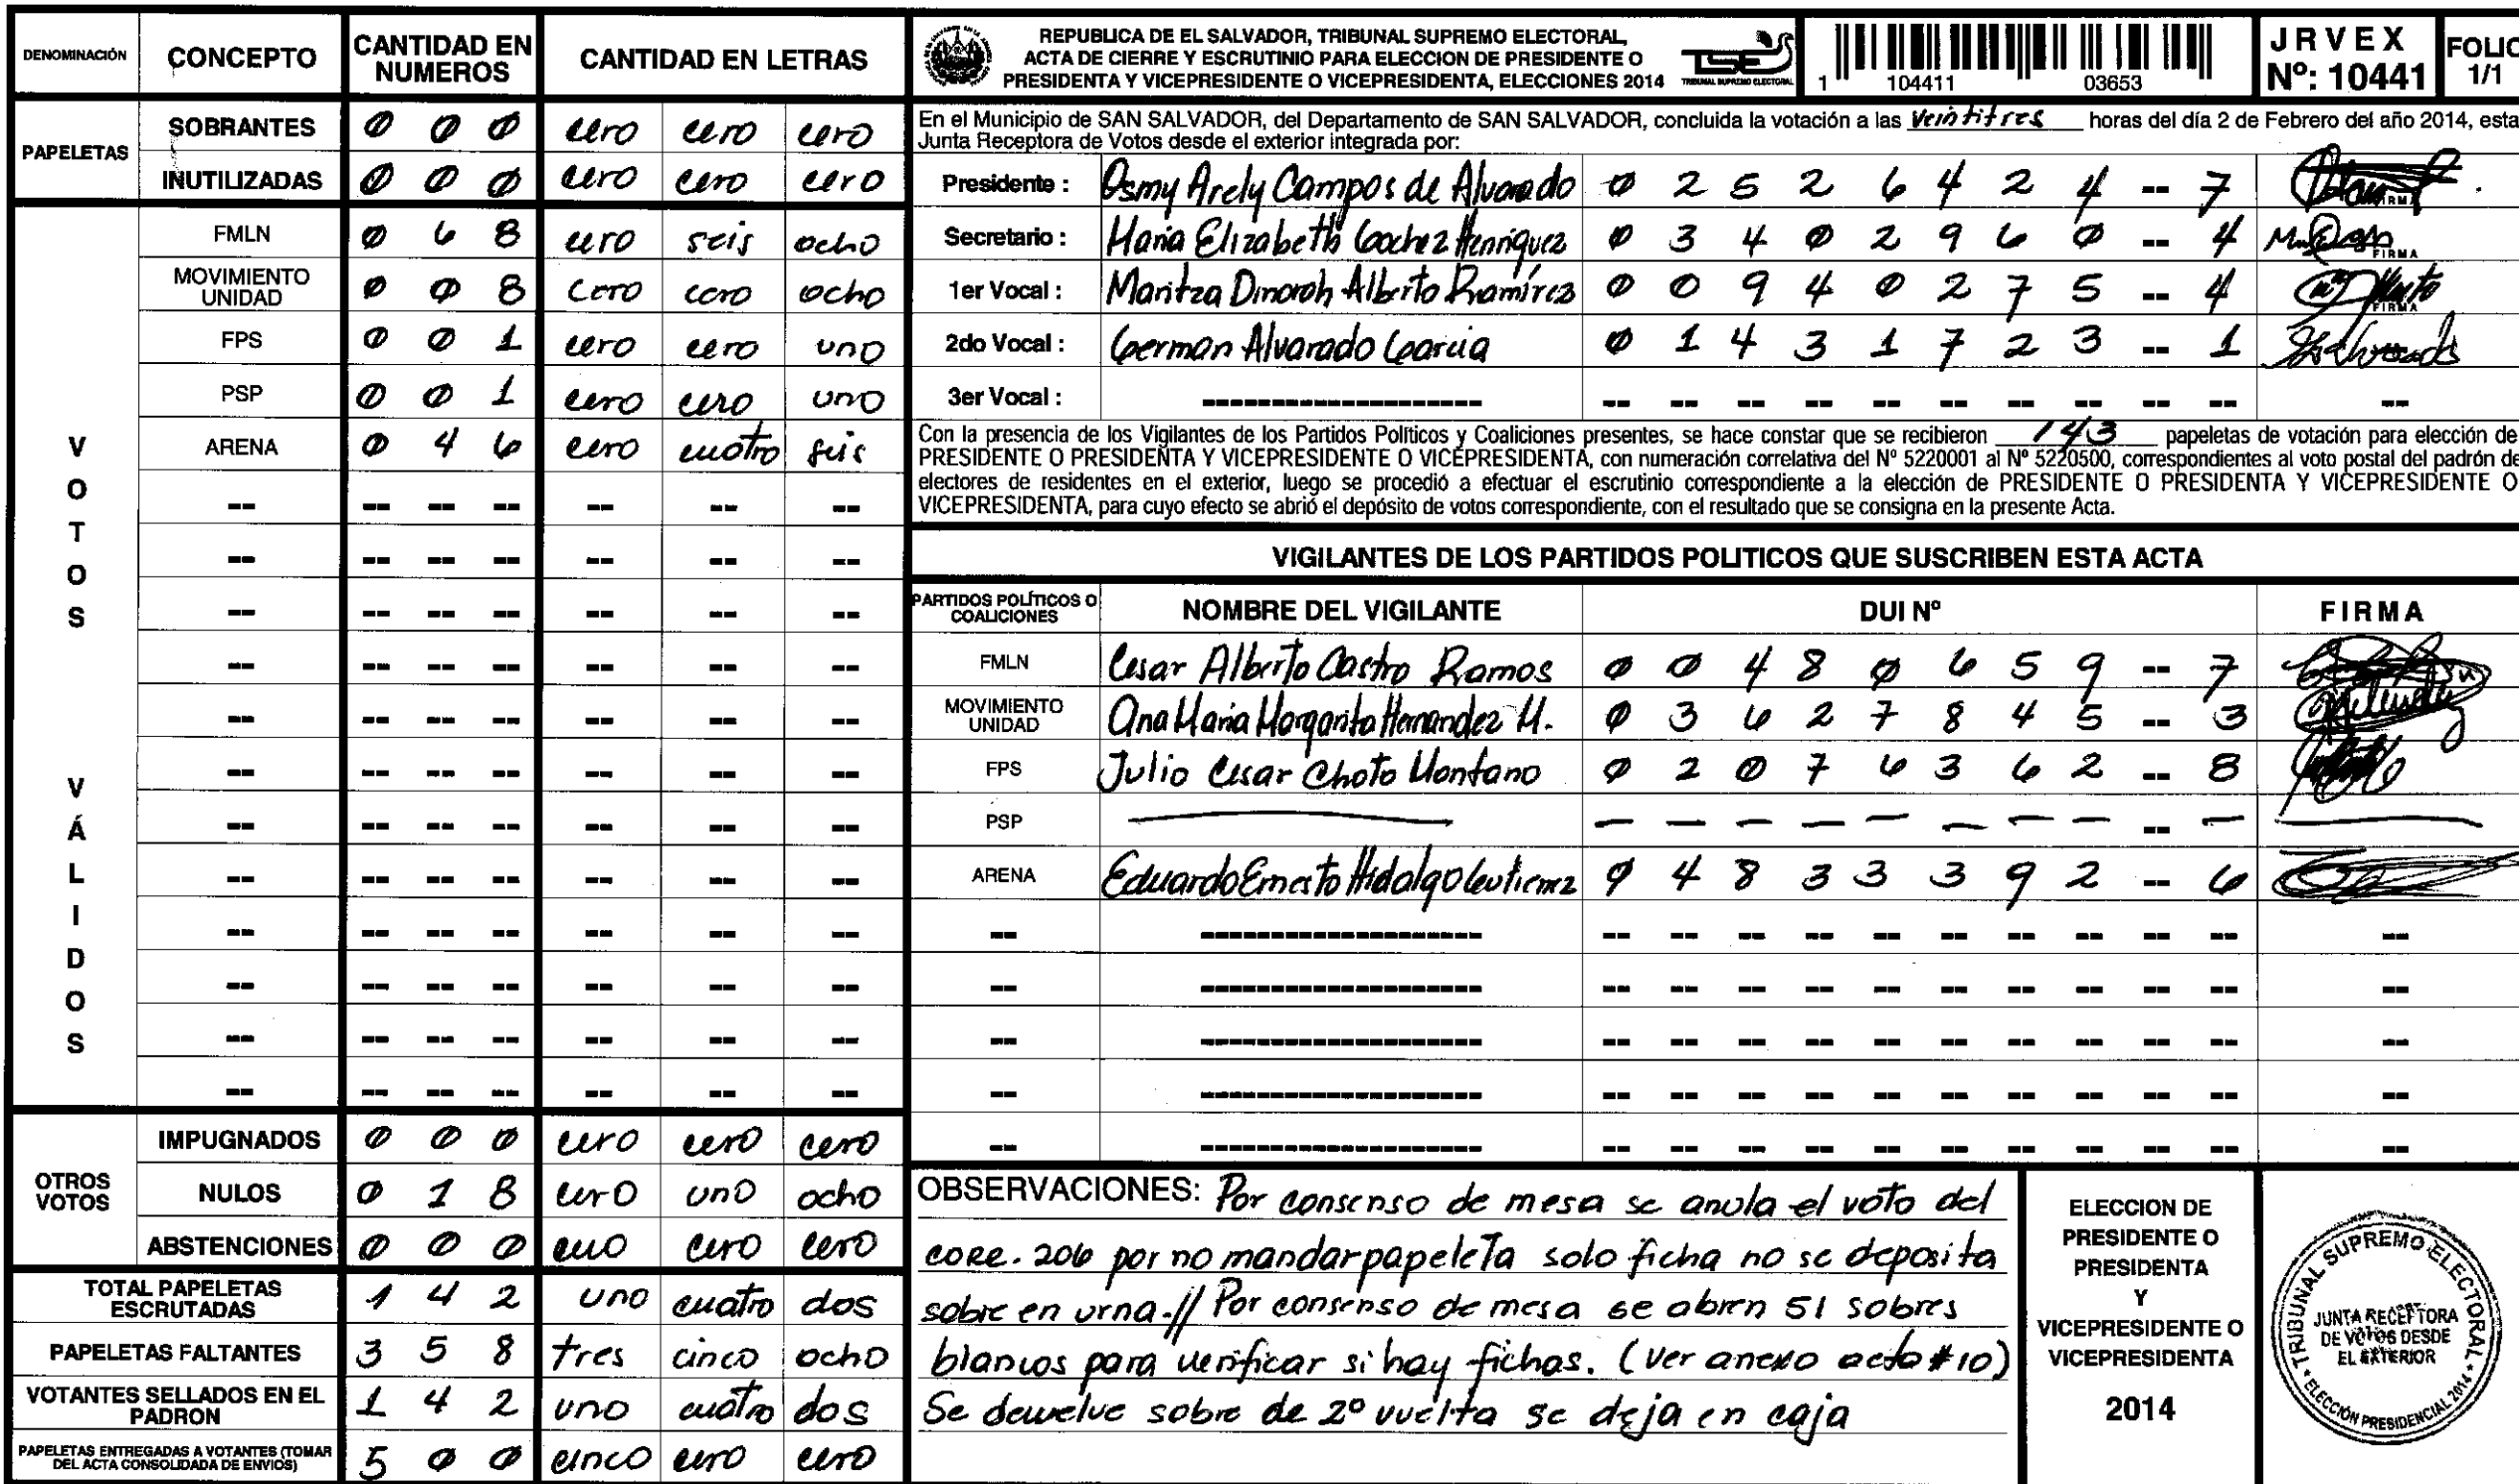 DENOMINACIÓN CONCEPTO CANTIDAD EN NUMEROS CANTIDAD EN LETRAS
PAPELETAS
SOBRANTES 0 0 0 cero cero cero
INUTILIZADAS 0 0 0 cero cero cero
VOTOS VÁLIDOS
FMLN 0 6 8 cero seis ocho
MOVIMIENTO UNIDAD 0 0 8 cero cero ocho
FPS 0 0 1 cero cero uno
PSP 0 0 1 cero cero uno
ARENA 0 4 6 cero cuatro seis
OTROS VOTOS
IMPUGNADOS 0 0 0 cero cero cero
NULOS 0 1 8 cero uno ocho
ABSTENCIONES 0 0 0 cero cero cero
TOTAL PAPELETAS ESCRUTADAS 1 4 2 uno cuatro dos
PAPELETAS FALTANTES 3 5 8 tres cinco ocho
VOTANTES SELLADOS EN EL PADRON 1 4 2 uno cuatro dos
PAPELETAS ENTREGADAS A VOTANTES (TOMAR DEL ACTA CONSOLIDADA DE ENVIOS) 5 0 0 cinco cero cero
REPUBLICA DE EL SALVADOR, TRIBUNAL SUPREMO ELECTORAL
ACTA DE CIERRE Y ESCRUTINIO PARA ELECCION DE PRESIDENTE O
PRESIDENTA Y VICEPRESIDENTE O VICEPRESIDENTA, ELECCIONES 2014
TSE
TRIBUNAL SUPREMO ELECTORAL
1 104411 03653
JRVEX
Nº: 10441
FOLIO
1/1
En el Municipio de SAN SALVADOR, del Departamento de SAN SALVADOR, concluida la votación a las veintitres horas del día 2 de Febrero del año 2014, esta
Junta Receptora de Votos desde el exterior integrada por:
Presidente : Osmy Arely Campos de Alvarado 0 2 5 2 6 4 2 4 -- 7
Secretario : Maria Elizabeth Goochez Henriquez 0 3 4 0 2 9 6 0 -- 4 FIRMA
1er Vocal : Maritza Dinorah Alberto Ramírez 0 0 9 4 0 2 7 5 -- 4 FIRMA
2do Vocal : German Alvarado Garcia 0 1 4 3 1 7 2 3 -- 1
3er Vocal :
Con la presencia de los Vigilantes de los Partidos Políticos y Coaliciones presentes, se hace constar que se recibieron 143 papeletas de votación para elección de
PRESIDENTE O PRESIDENTA Y VICEPRESIDENTE O VICEPRESIDENTA, con numeración correlativa del Nº 5220001 al Nº 5220500, correspondientes al voto postal del padrón de
electores de residentes en el exterior, luego se procedió a efectuar el escrutinio correspondiente a la elección de PRESIDENTE O PRESIDENTA Y VICEPRESIDENTE O
VICEPRESIDENTA, para cuyo efecto se abrió el depósito de votos correspondiente, con el resultado que se consigna en la presente Acta.
VIGILANTES DE LOS PARTIDOS POLITICOS QUE SUSCRIBEN ESTA ACTA
PARTIDOS POLÍTICOS O COALICIONES NOMBRE DEL VIGILANTE DUI Nº FIRMA
FMLN Cesar Alberto Castro Ramos 0 0 4 8 0 6 5 9 -- 7
MOVIMIENTO UNIDAD Ana Maria Margarita Hernandez M. 0 3 6 2 7 8 4 5 -- 3
FPS Julio Cesar Choto Montano 0 2 0 7 6 3 6 2 -- 8
PSP
ARENA Eduardo Ernesto Hidalgo Gutierrez 0 4 8 3 3 3 9 2 -- 6
OBSERVACIONES: Por consenso de mesa se anula el voto del
corr. 206 por no mandar papeleta solo ficha no se deposita
sobre en urna.// Por consenso de mesa se abren 51 sobres
blancos para verificar si hay fichas. (ver anexo acta #10)
Se devuelve sobre de 2º vuelta se deja en caja
ELECCION DE
PRESIDENTE O
PRESIDENTA
Y
VICEPRESIDENTE O
VICEPRESIDENTA
2014
TRIBUNAL SUPREMO ELECTORAL
JUNTA RECEPTORA
DE VOTOS DESDE
EL EXTERIOR
ELECCIÓN PRESIDENCIAL 2014